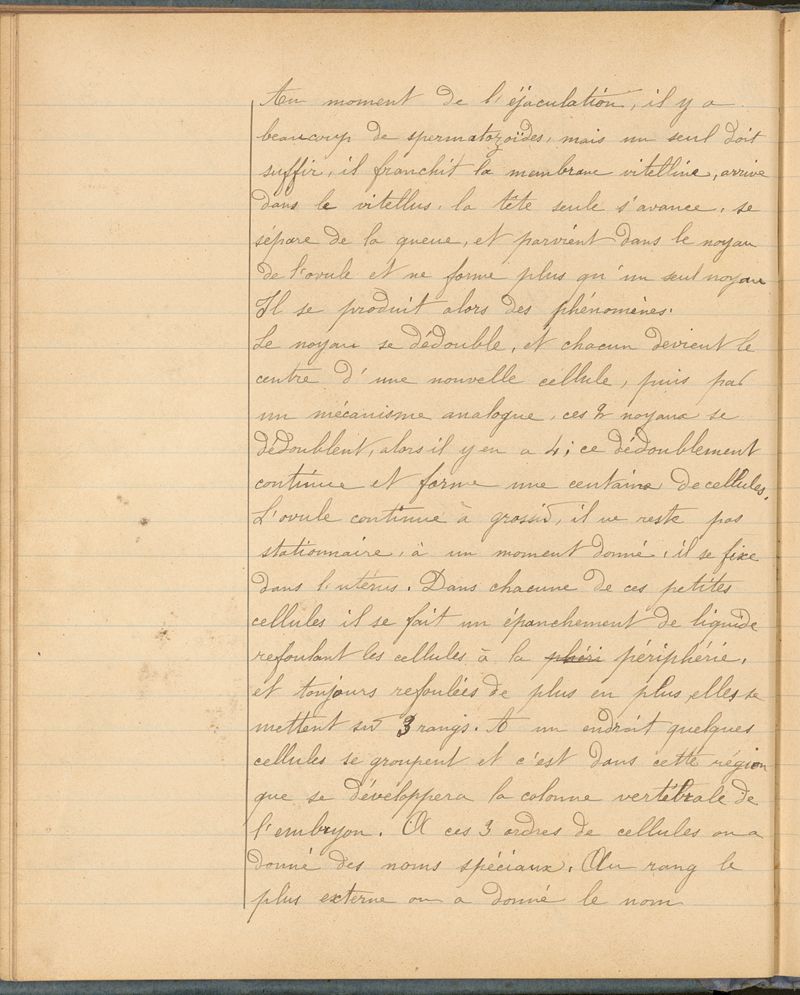 Au moment de l'éjaculation, il y a
beaucoup de spermatozoïdes, mais un seul doit
suffir, il franchit la membrane vitelline, arrive
dans le vitellus. la tête seule s'avance, se
sépare de la queue, et parvient dans le noyau
de l'ovule et ne forme plus qu'un seul noyau
Il se produit alors des phénomènes.
Le noyau se dédouble, et chacun devient le
centre d'une nouvelle cellule, puis par
un mécanisme analogue, ces 2 noyaux se
dédoublent, alors il y en a 4; ce dédoublement
continue et forme une centaine de cellules.
L'ovule continue à grossir, il ne reste pas
stationnaire, à un moment donné, il se fixe
dans l'utérus. Dans chacune de ces petites
cellules il se fait un épanchement de liquide
refoulant les cellules à la phéri périphérie,
et toujours refoulées de plus en plus elles se
mettent sur 3 rangs. A un endroit quelques
cellules se groupent et c'est dans cette région
que se développera la colonne vertébrale de
l'embryon. A ces 3 ordres de cellules on a
donné des noms spéciaux. Au rang le
plus externe on a donné le nom